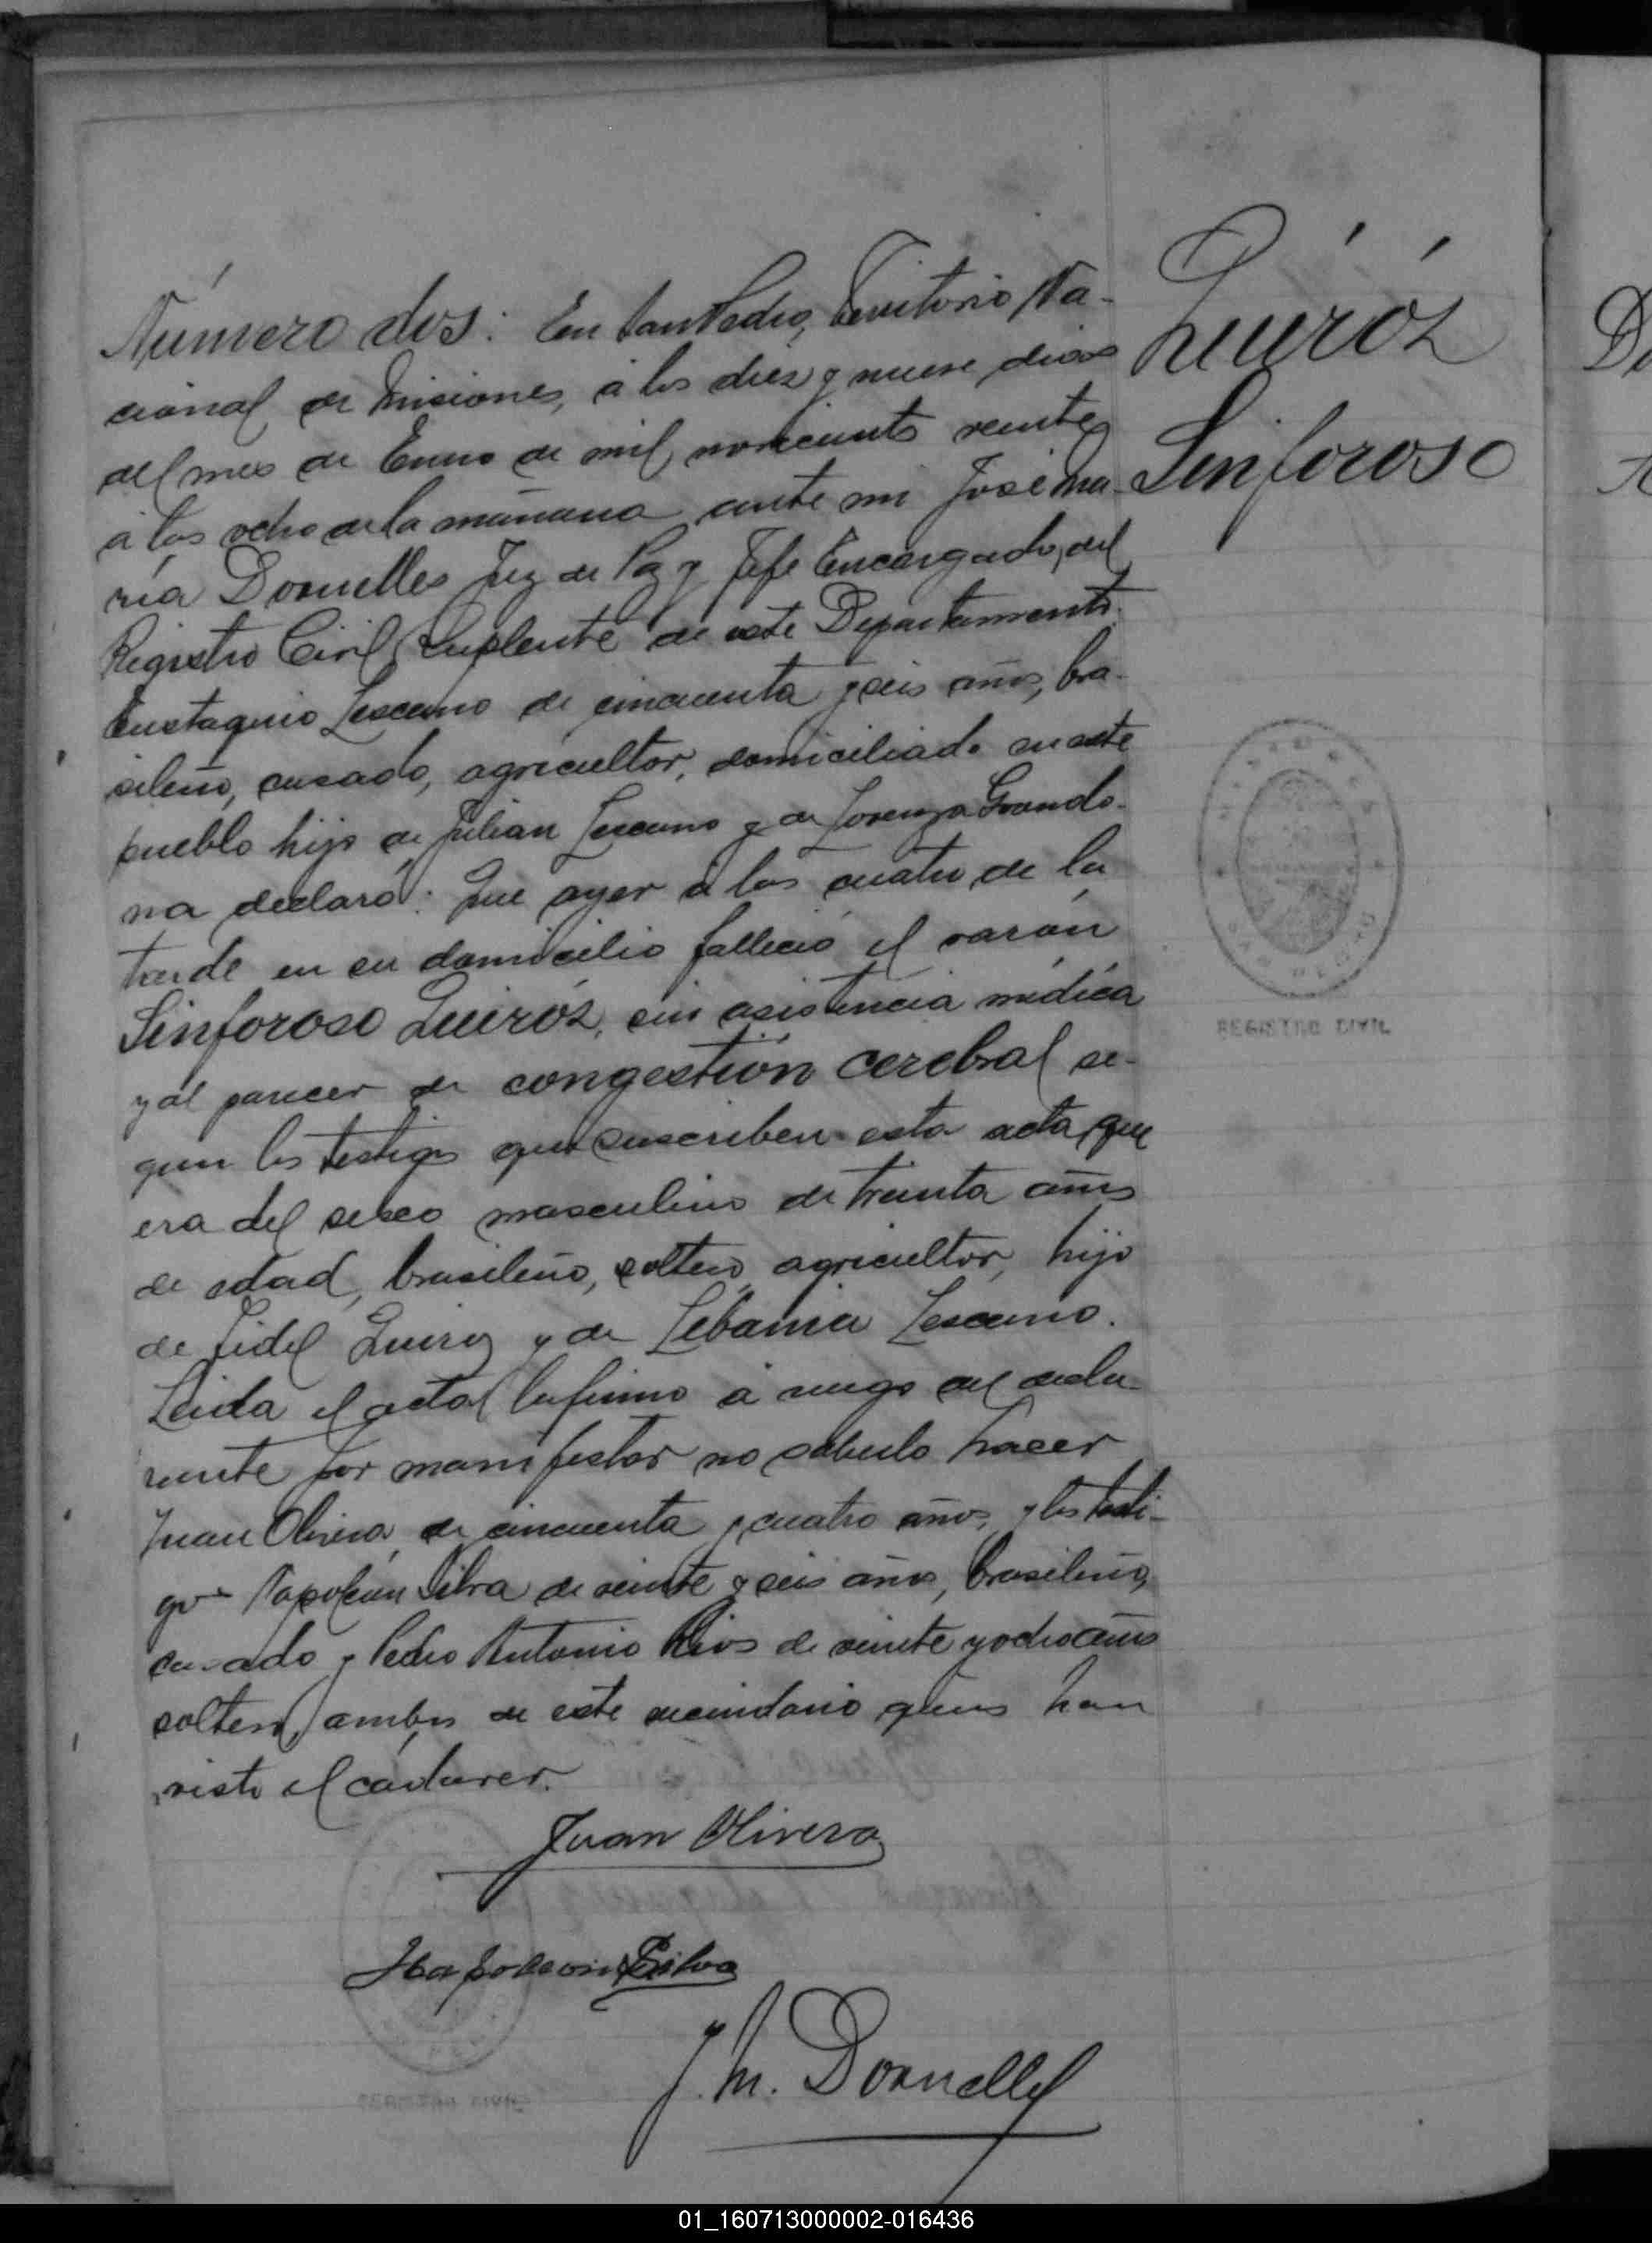 Número dos: En San Pedro, Territorio Na-
cional de Misiones, á los diez y nueve dias
del mes de Enero de mil novecientos veinte
á las ocho de la mañana ante mi José Ma-
ría Dornelles Juez de Paz y Jefe Encargado, del
Registro Civil Suplente de este Departamento.
Eustaquio Lescano de cincuenta y seis años, bra-
sileño, casado, agricultor, domiciliado en este
pueblo hijo de Julian Lescano y de Lorenza Grando-
na declaró: Que ayer á las cuatro de la
tarde en su domicilio falleció el varón
Sinforoso Quiróz, sin asistencia médica
y al parecer de congestión cerebral se-
gun los testigos que suscriben esta acta, que
era del sexo masculino de treinta años
de edad, brasileño, soltero, agricultor, hijo
de Fidel Quiroz y de Lescano.
Leida el acta la firmo á ruego del decla-
rante por manifestar no saberlo hacer
Juan Olivera, de cincuenta y cuatro años, y los testi-
gos Napoleón Silva de veinte y seis años, brasileño,
casado y Pedro Antonio Rios de veinte y ocho años
soltero, ambos de este vecindario quienes han
visto el cádaver.
Juan Olivera
Napoleon Silva
J. M. Dornelles
Quiróz
Sinforoso
REGISTRO CIVIL
REGISTRO CIVIL
01_160713000002-016436